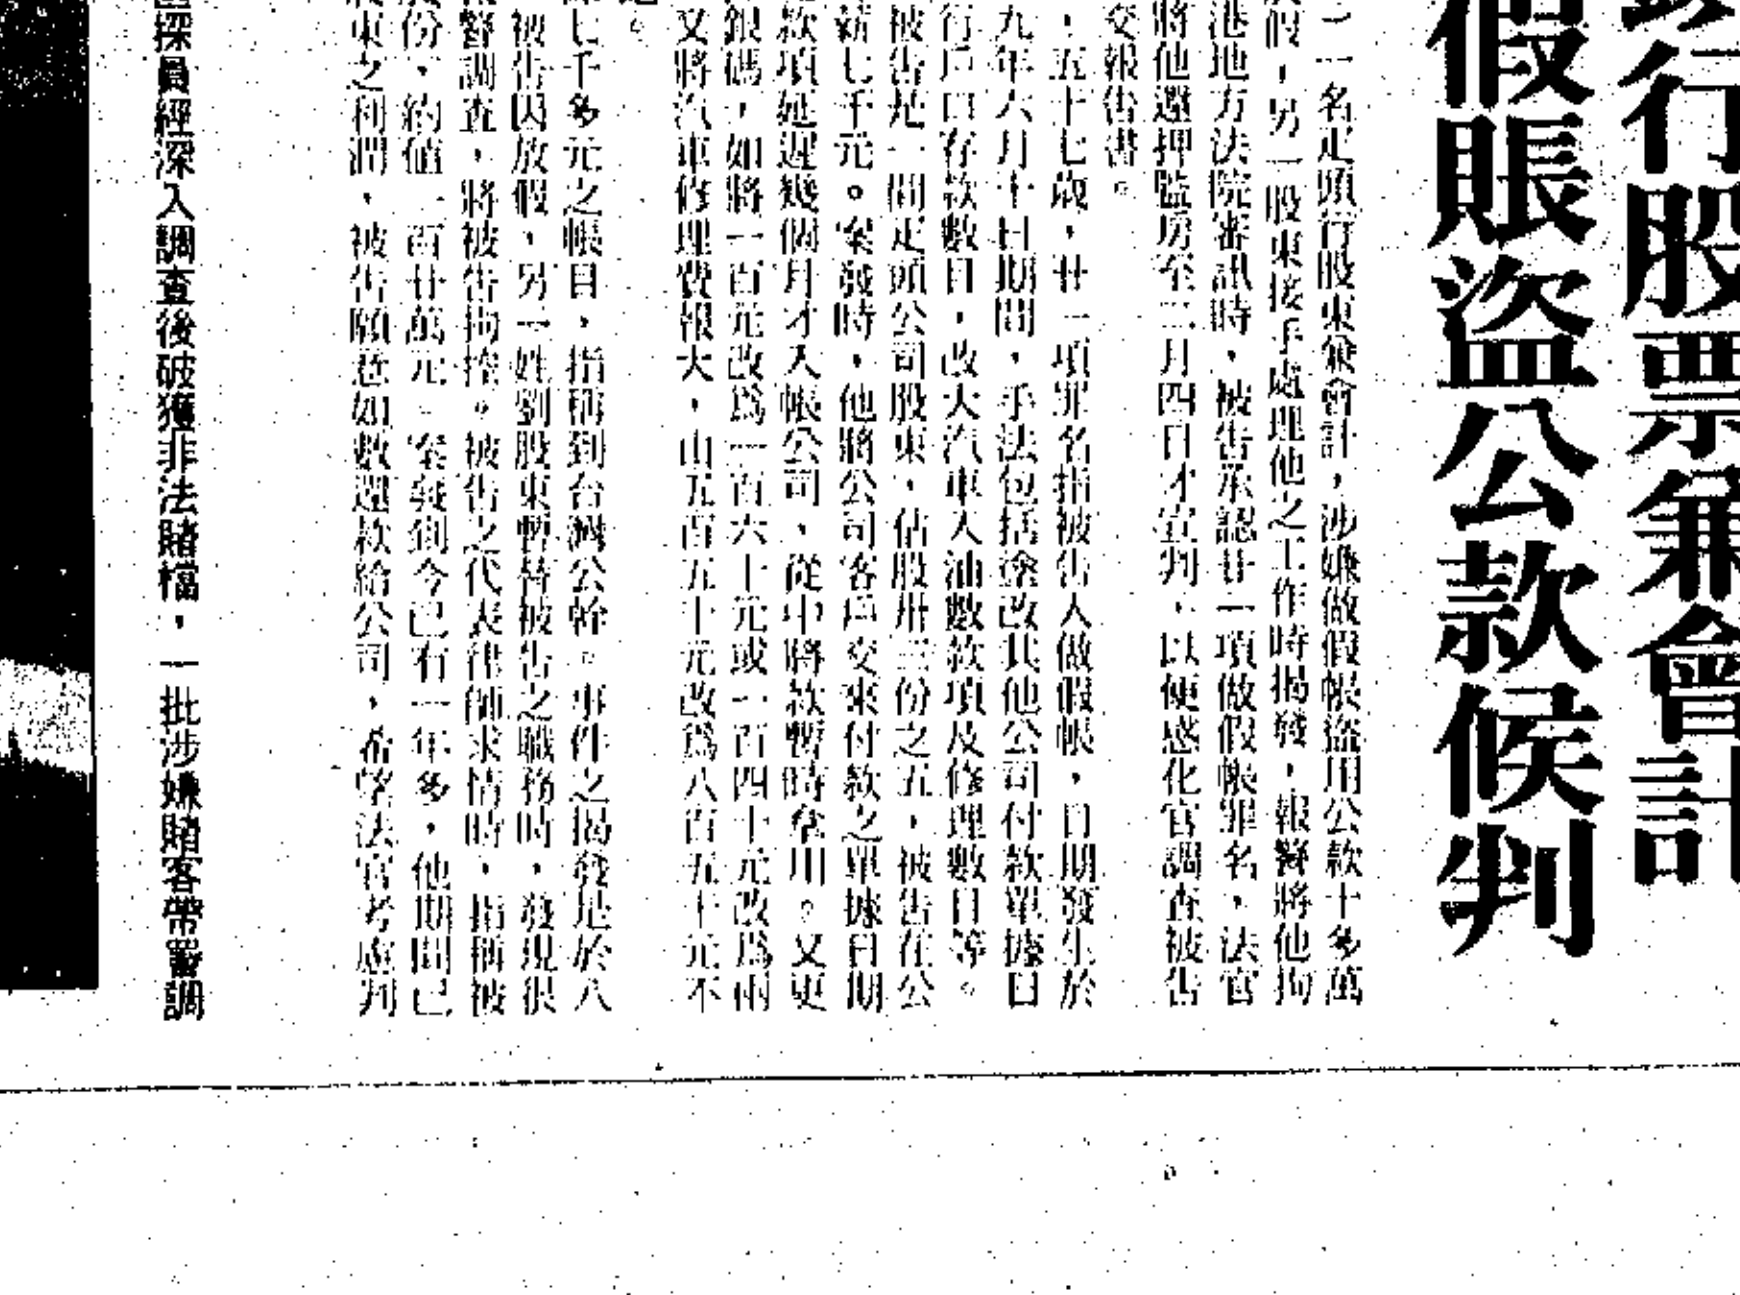 行股票兼會計
假賬盜公款候判
一名疋頭行股東兼會計，涉嫌做假帳盜用公款十多萬
假，另一股東接手處理他之工作時揭發，報警將他拘
港地方法院審訊時，被告承認廿一項做假帳罪名，法官
將他還押監房至二月四日才宣判，以便感化官調查被告
交報告書。
，五十七歲，廿一項罪名指被告人做假帳，日期發生於
九年六月十日期間，手法包括塗改其他公司付款單據日
行戶口存款數目，改大汽車入油數款項及修理數目等。
被告是一間疋頭公司股東，佔股卅三份之五，被告在公
薪七千元。案發時，他將公司客戶交來付款之單據日期
款項延遲幾個月才入帳公司，從中將款暫時拿用。又更
銀碼，如將一百元改為一百六十元或一百四十元改為兩
又將汽車修理費報大，由五百五十元改為八百五十元不
七千多元之帳目，指稱到台灣公幹。事件之揭發是於八
被告因放假，另一姓劉股東暫替被告之職務時，發現很
警調查，將被告拘控。被告之代表律師求情時，指稱被
份，約值一百廿萬元。案發到今已有一年多，他期間已
東之利潤，被告願意如數還款給公司，希望法官考慮判
探員經深入調查後破獲非法賭檔，一批涉嫌賭客帶署調